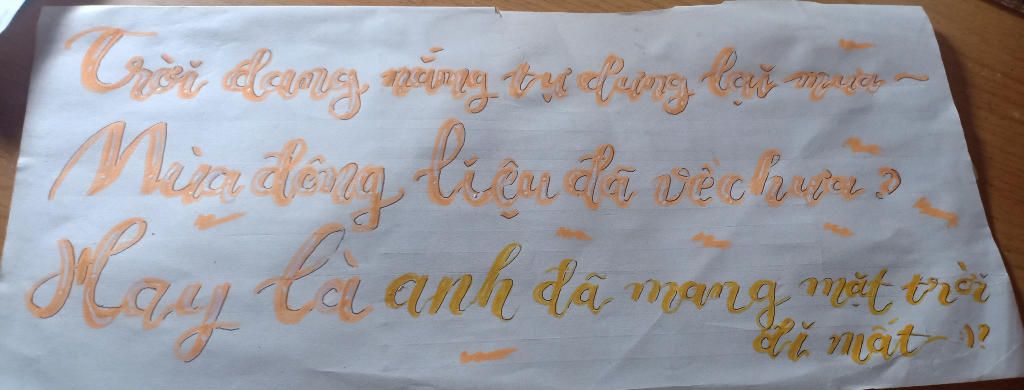 Trời đang nắng tự dưng lại mưa ~
Mùa đông liệu đã về chưa?
Hay là anh đã mang mặt trời
đi mất )?